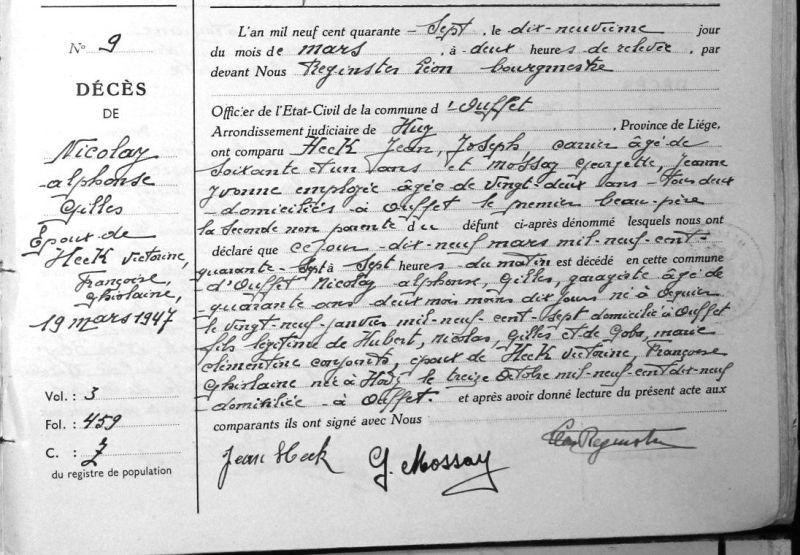 N° 9
DÉCÈS
DE
Nicolay
alphonse
Gilles
Epoux de
Heck victorine,
Françoise,
Ghislaine,
19 mars 1947
Vol. : 3
Fol. : 459
C. : 7
du registre de population
L'an mil neuf cent quarante-Sept, le dix-neuvième jour
du mois de mars, à deux heures de relevée, par
devant Nous Reginster Léon bourgmestre
Officier de l'Etat-Civil de la commune d'Ouffet
Arrondissement judiciaire de Huy, Province de Liége,
ont comparu Heck Jean, Joseph, carrier âgé de
soixante et un ans et Mossay Georgette, Jeanne
Yvonne employée âgée de vingt-deux ans - tous deux
domiciliés à Ouffet le premier beau-père
la seconde non parente du défunt ci-après dénommé lesquels nous ont
déclaré que ce jour dix-neuf mars mil-neuf-cent-
quarante-Sept à Sept heures du matin est décédé en cette commune
d'Ouffet Nicolay alphonse, Gilles, garagiste âgé de
quarante ans deux mois moins dix jours né à
le vingt-neuf-janvier mil-neuf-cent-sept domicilié à Ouffet
fils légitime de Hubert, nicolas, Gilles et de Gobs, marie
clémentine conjoints, époux de Heck victorine, Françoise
Ghislaine née à Hody le treize Octobre mil-neuf-cent-dix-neuf
domiciliée à Ouffet. et après avoir donné lecture du présent acte aux
comparants ils ont signé avec Nous
Jean Heck
G. Mossay
Léon Reginster